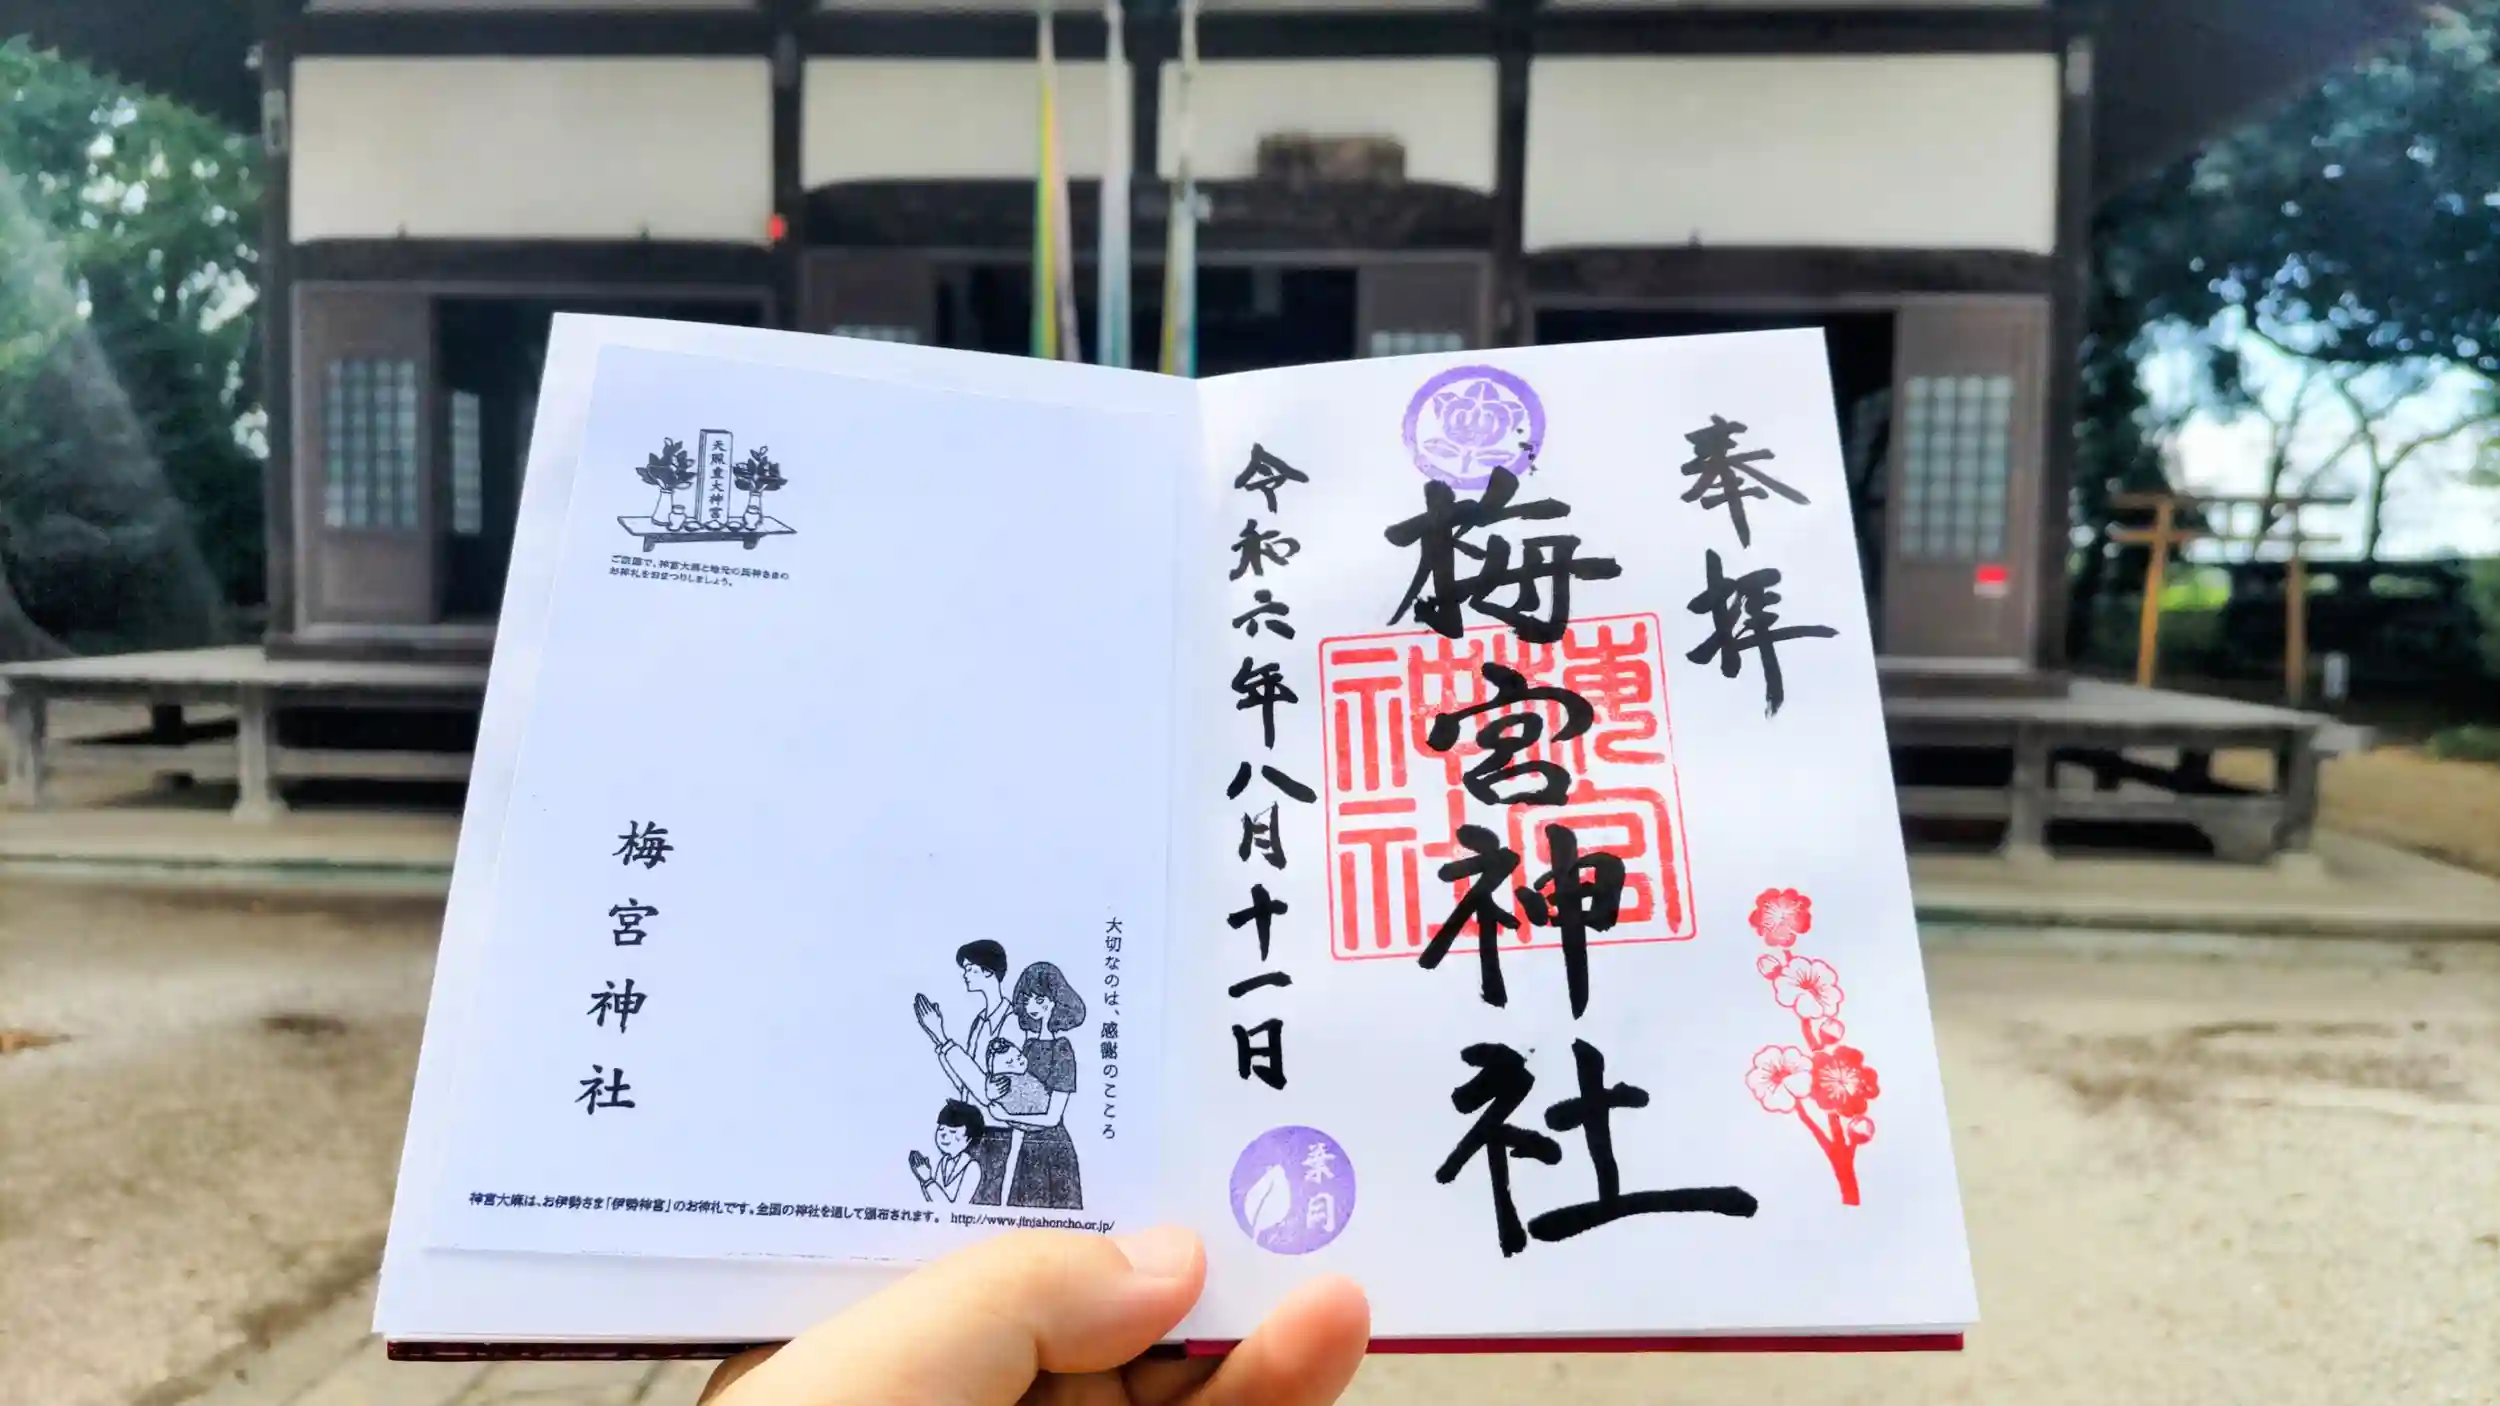 奉拝
梅宮神社
梅宮神社
令和六年八月十一日
葉月
天照皇大神宮
ご家庭で、神宮大麻と地元の氏神さまの
お神札をおまつりしましょう。
大切なのは、感謝のこころ
梅宮神社
神宮大麻は、お伊勢さま「伊勢神宮」のお神札です。全国の神社を通して頒布されます。 http://www.jinjahoncho.or.jp/